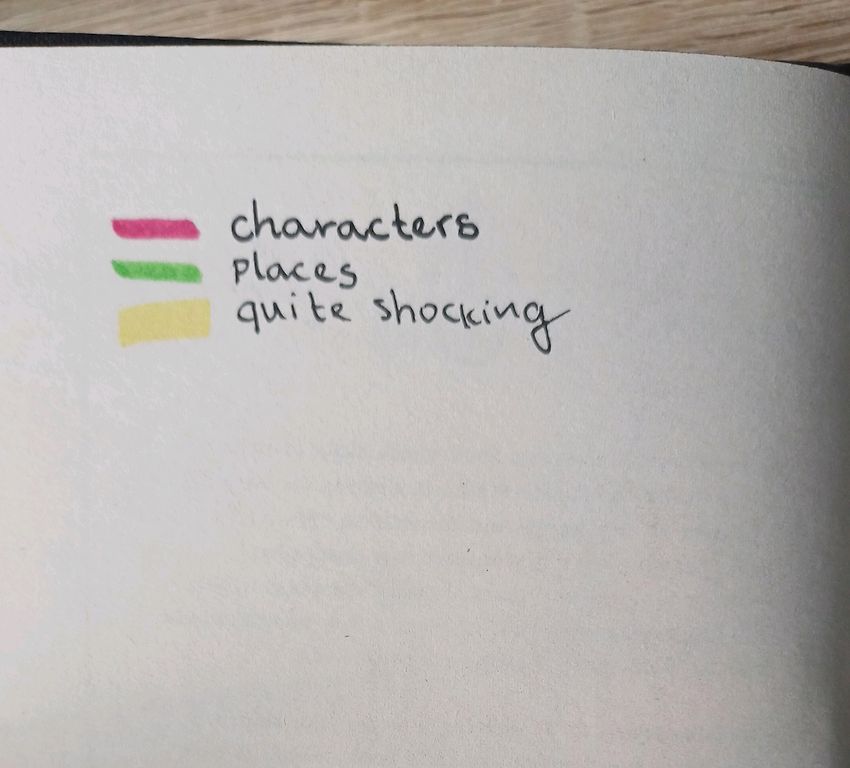 characters
places
quite shocking